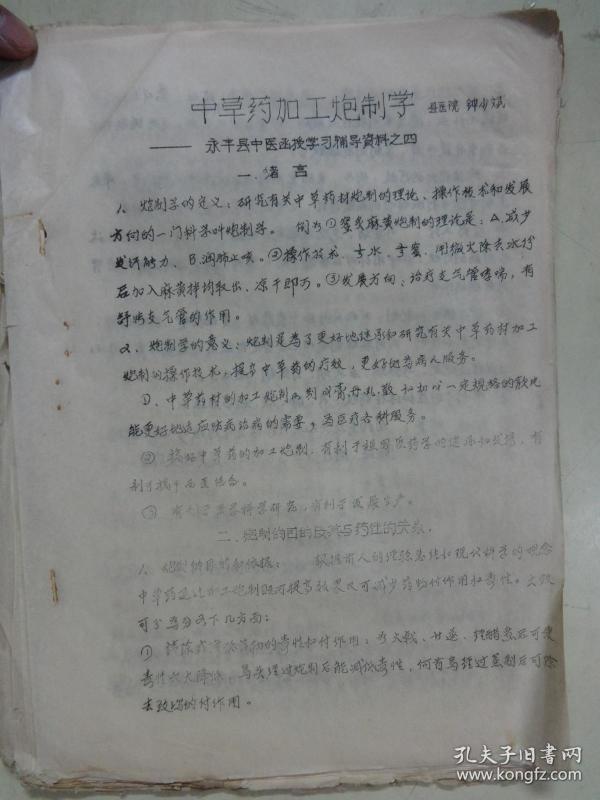 中草药加工炮制学 县医院 钟少斌
—— 永丰县中医函授学习辅导资料之四
一. 渚言
1、炮制学的定义：研究有关中草药材炮制的理论、操作技术和发展
方向的一门科学叫炮制学。例如①蜜炙麻黄炮制的理论是：A.减少
发汗能力、B.润肺止咳。②操作技术、去水、去蜜、用微火除去水份
后加入麻黄拌均取出、凉干即可。③发展方向：治疗支气管哮喘，有
舒张支气管的作用。
2、炮制学的意义：炮制是为了更好地继承和研究有关中草药材加工
炮制的操作技术，提高中草药的疗效，更好地为病人服务。
①、中草药材的加工炮制，制成膏丹丸散和切成一定规格的饮片
能更好地适应防病治病的需要，为医疗各科服务。
② 搞好中草药的加工炮制，有利于祖国医药学的继承和发扬，有
利于搞中西医结合。
③ 有利于 科学研究，有利于发展生产。
二. 炮制的目的 与药性的关系
1、炮制的目的和依据： 根据前人的经验总结和现代科学的观念
中草药通过加工炮制既可提高效果又可减少药物付作用和毒性。大致
可分为如下几方面：
① 清除或 药物的毒性和付作用：如大戟、甘遂、经醋煮后可使
毒性大大降低，乌头经过炮制后能减低毒性，何首乌经过蒸制后可除
去致泻的付作用。
孔夫子旧书网
www.kongfz.com